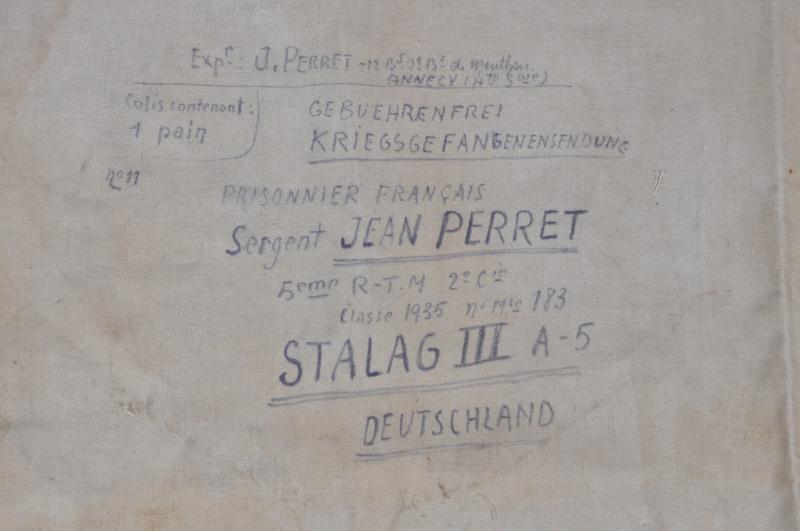 Expr: J. PERRET - 12 Bd St Bd de Menthon.
ANNECY (Hte Savoie)
Colis contenant:
1 pain
GEBUEHRENFREI
KRIEGSGEFANGENENSENDUNG
no 11
PRISONNIER FRANÇAIS
Sergent JEAN PERRET
5eme R-T.M 2e Cie
Classe 1935 no Mle 183
STALAG III A-5
DEUTSCHLAND